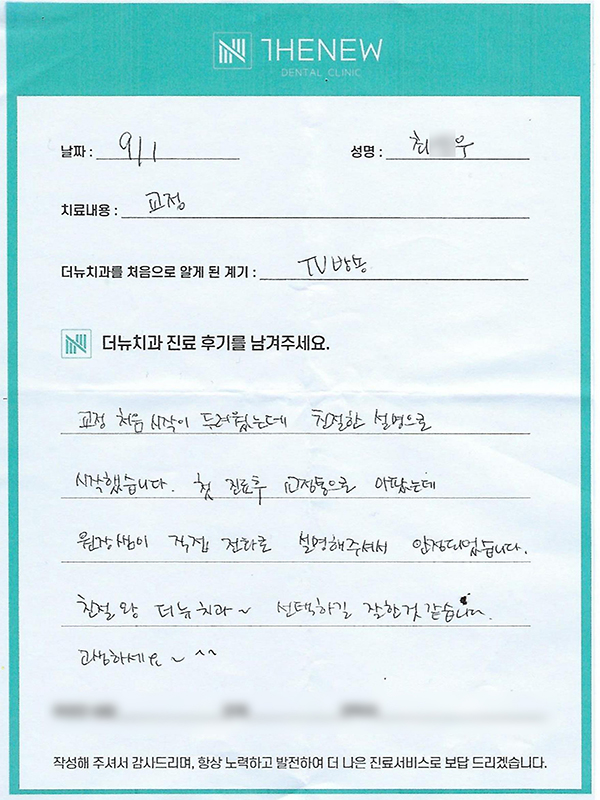 THENEW
DENTAL CLINIC
날짜 : 9/1 성명 : 최 우
치료내용 : 교정
더뉴치과를 처음으로 알게 된 계기 : TV방송
더뉴치과 진료 후기를 남겨주세요.
교정 처음 시작이 두려웠는데 친절한 설명으로
시작했습니다. 첫 진료후 교정통으로 아팠는데
원장쌤이 직접 전화로 설명해주셔서 안정되었습니다.
친절왕 더뉴치과~ 선택하길 잘한것 같습니다.
고생하세요~ ^^
작성해 주셔서 감사드리며, 항상 노력하고 발전하여 더 나은 진료서비스로 보답 드리겠습니다.